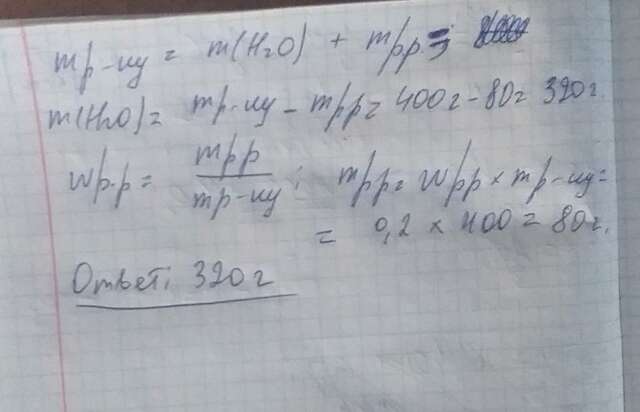 mр-ну = m(H₂O) + mрр=;
m(H₂O)= mр-ну - mрр= 400г-80г 320г.
wр.р = mрр/mр-ну; mрр= wрр × mр-ну=
= 0,2 × 400 = 80г.
Ответ: 320г